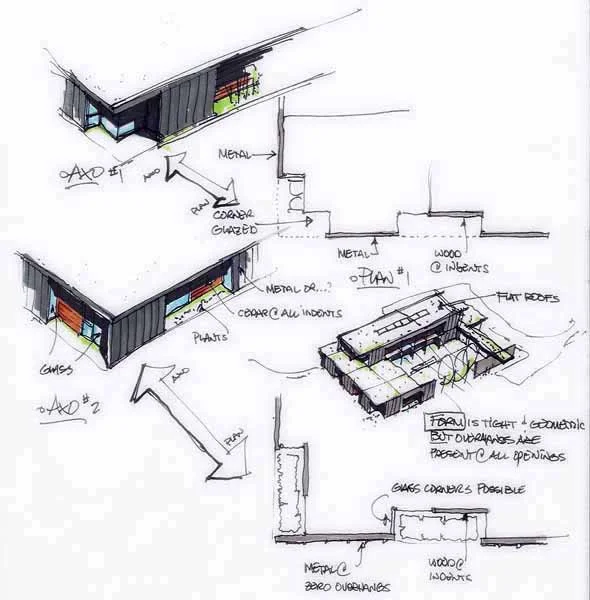 AXO #1
AXO
PLAN
METAL
CORNER
GLAZED
METAL
WOOD
@ INDENTS
PLAN #1
FLAT ROOFS
METAL OR...?
CEDAR @ ALL INDENTS
PLANTS
GLASS
AXO #2
AXO
PLAN
FORM IS TIGHT & GEOMETRIC
BUT OVERHANGS ARE
PRESENT @ ALL OPENINGS
GLASS CORNERS POSSIBLE
METAL @
ZERO OVERHANGS
WOOD @
INDENTS